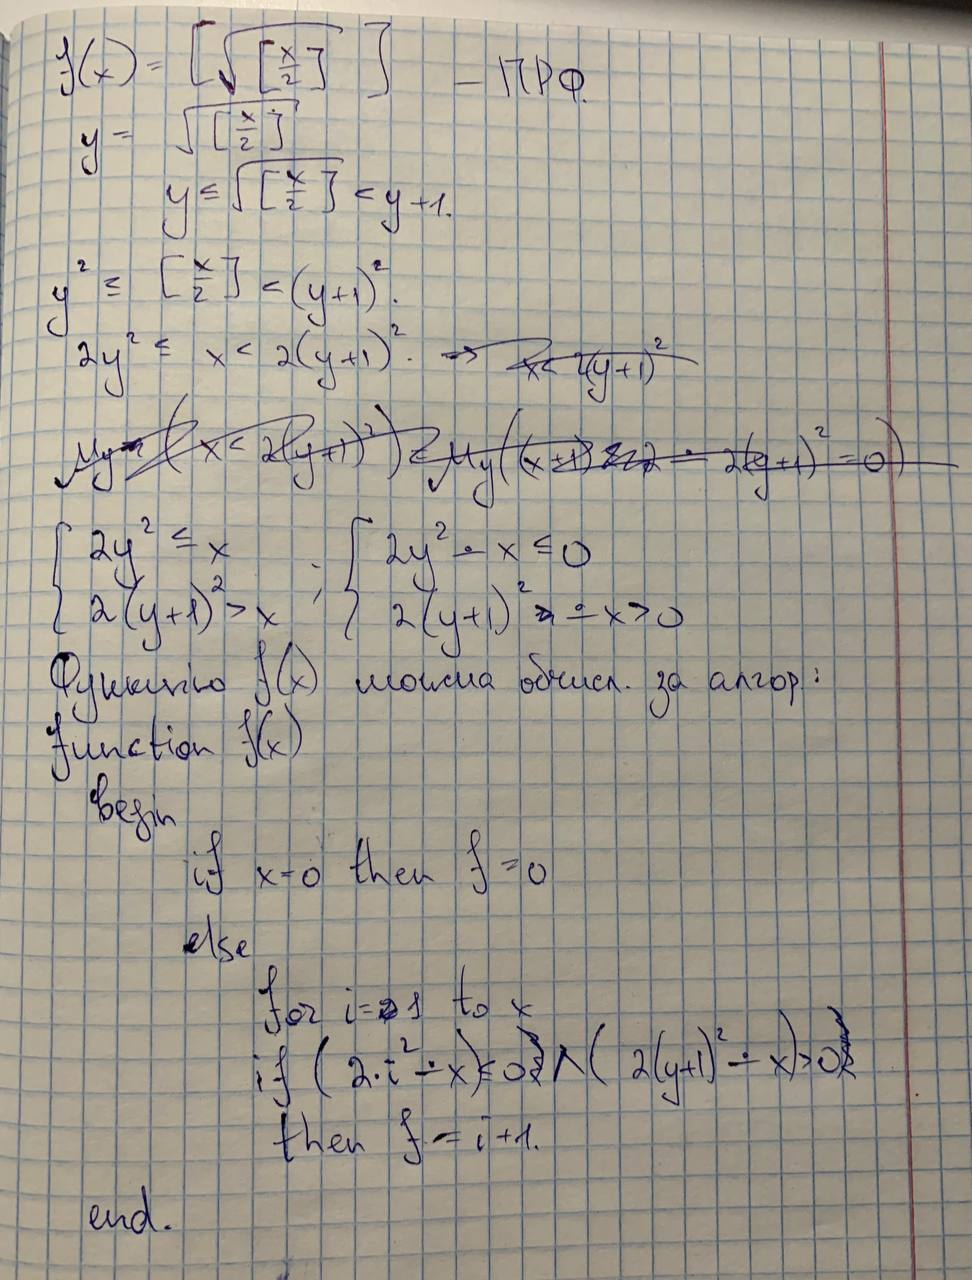 f(x) = [√[x/2]] – ПРФ.
y = √[x/2]
y ≤ √[x/2] < y+1.
y² ≤ [x/2] < (y+1)².
2y² ≤ x < 2(y+1)². → x < 2(y+1)²
μy (x < 2(y+1)²) μy((x+1) ∸ 2(y+1)² = 0)
{ 2y² ≤ x ; { 2y² ∸ x ≤ 0
2(y+1)² > x 2(y+1)² ∸ x > 0
Функцію f(x) можна обчисл. за алгор:
function f(x)
begin
if x=0 then f=0
else
for i=1 to x
if (2·i² ∸ x)≤0 ∧ (2(y+1)² ∸ x)>0
then f = i+1.
end.